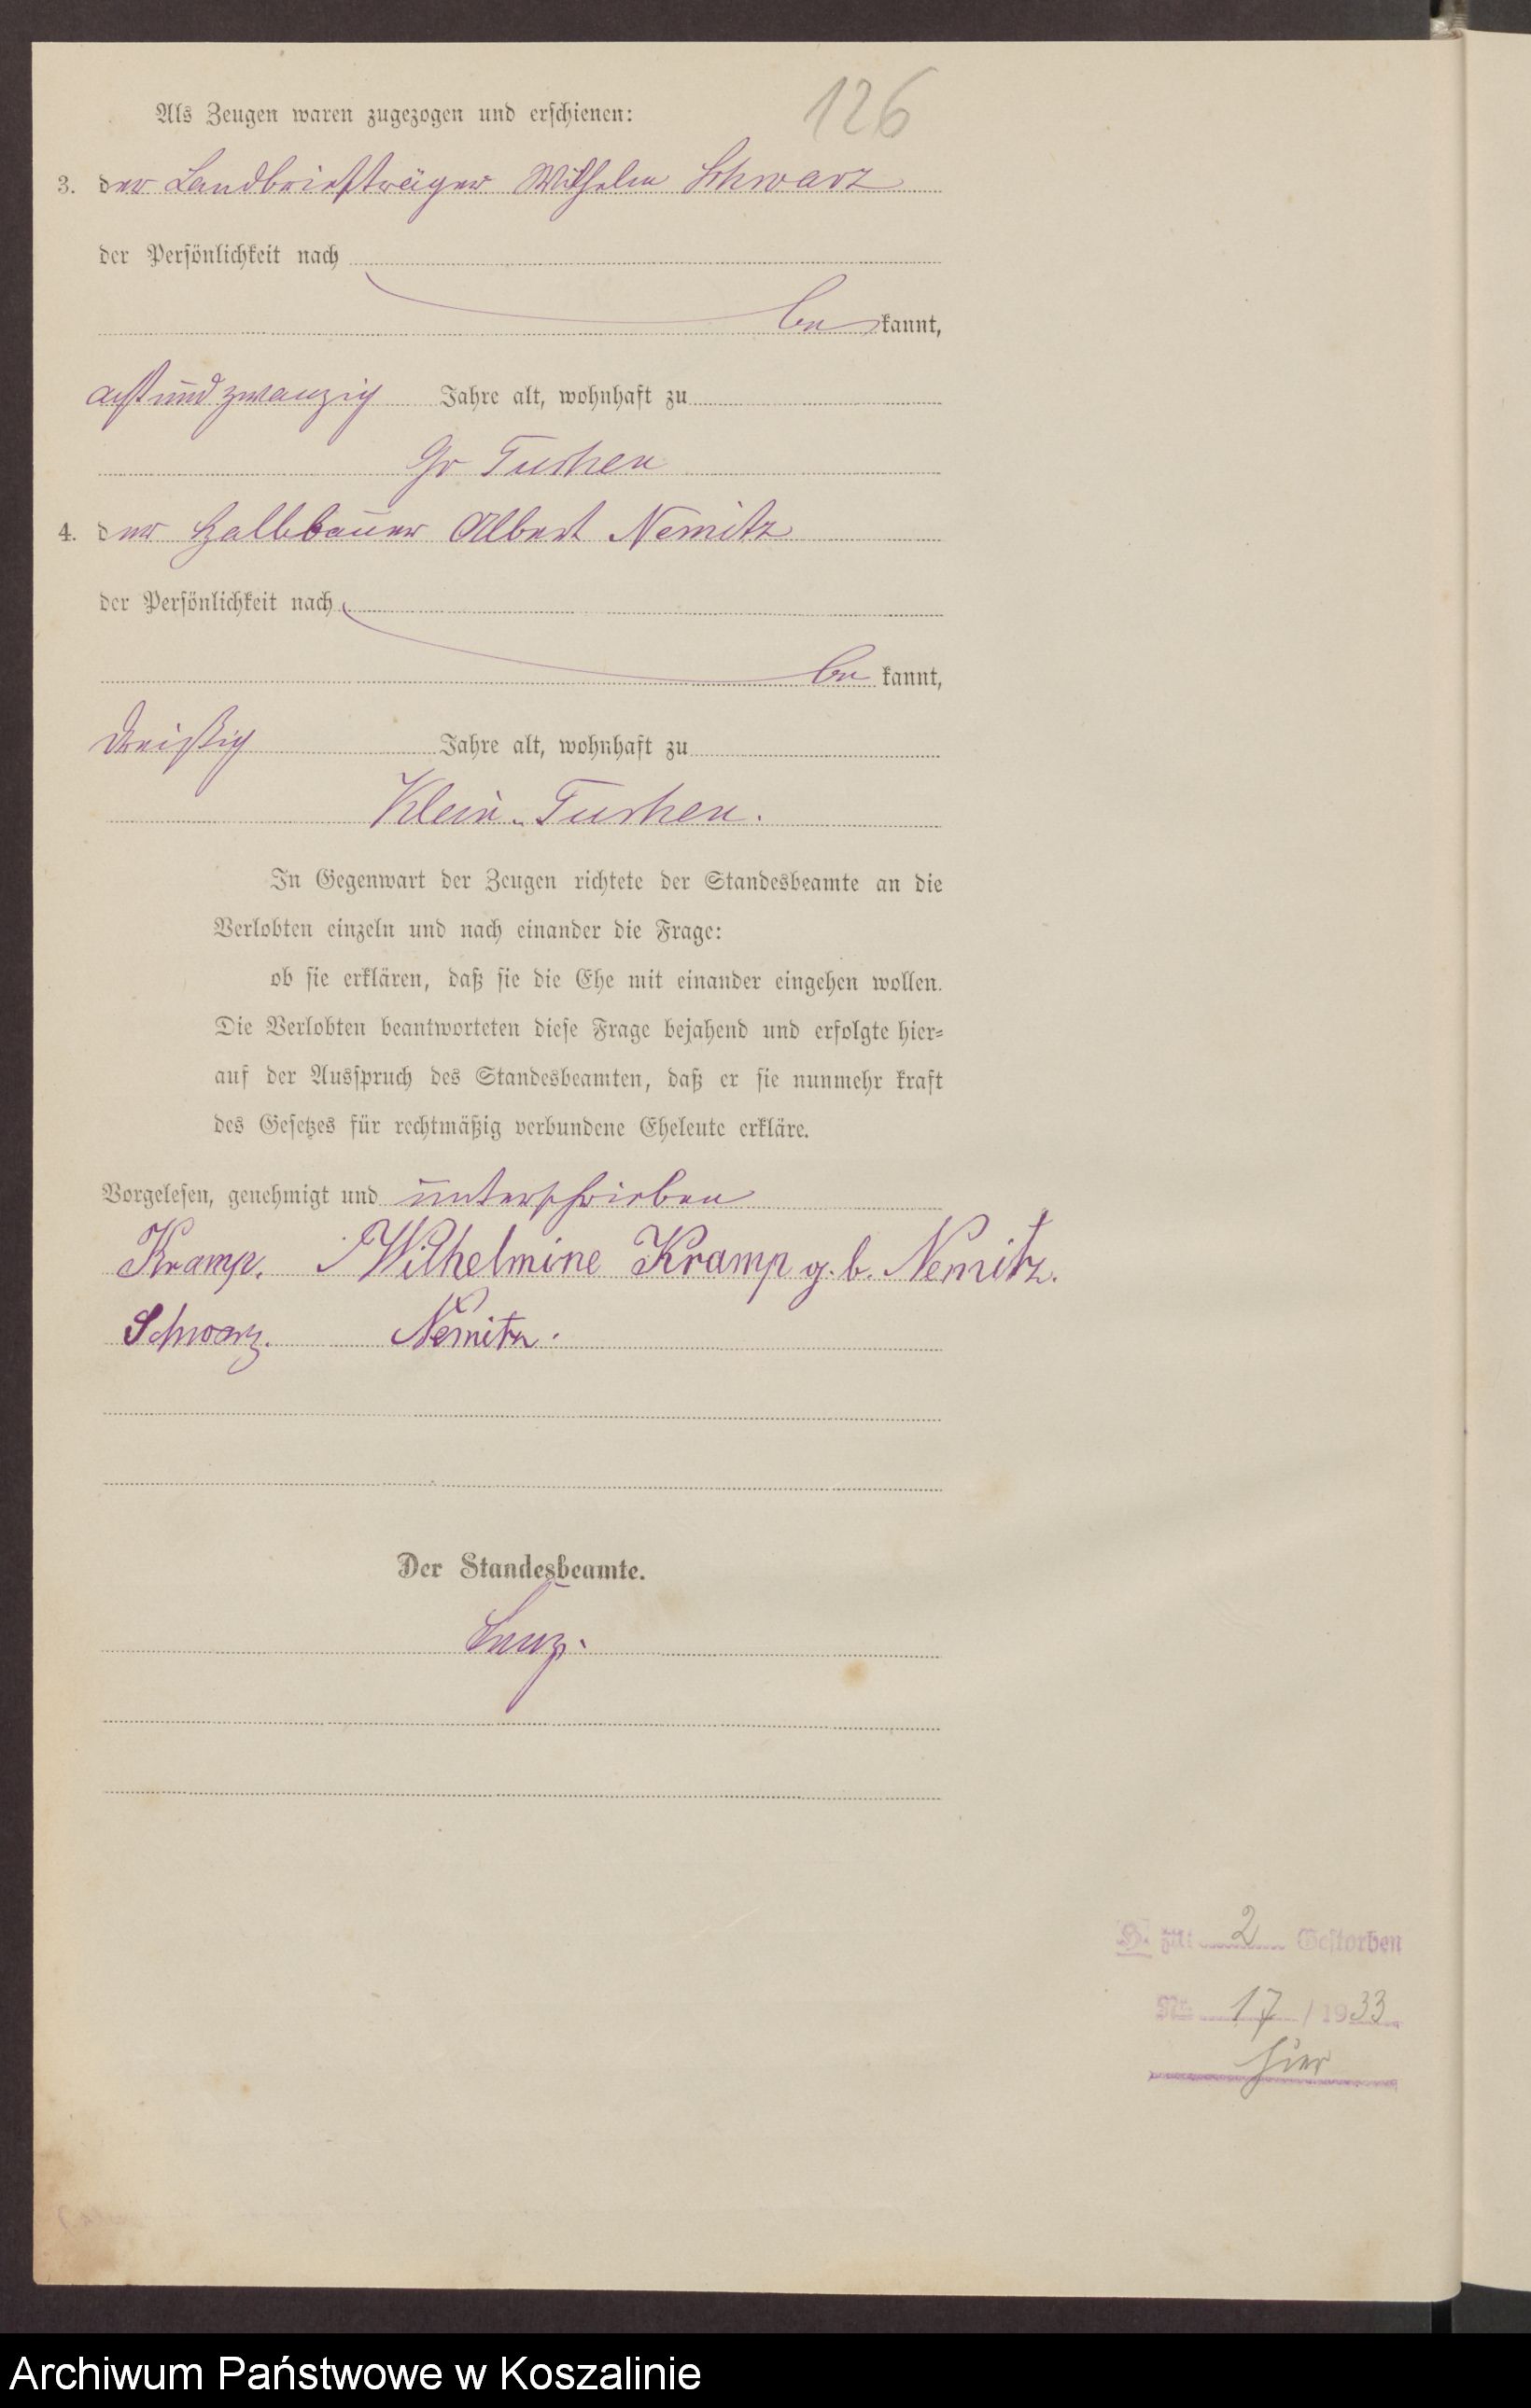 126
Als Zeugen waren zugezogen und erschienen:
3. der Landbriefträger Wilhelm Schwarz
der Persönlichkeit nach
be kannt,
achtundzwanzig Jahre alt, wohnhaft zu
Gr Tuchen
4. der Halbbauer Albert Nemitz
der Persönlichkeit nach
be kannt,
dreißig Jahre alt, wohnhaft zu
Klein-Tuchen.
In Gegenwart der Zeugen richtete der Standesbeamte an die
Verlobten einzeln und nach einander die Frage:
ob sie erklären, daß sie die Ehe mit einander eingehen wollen.
Die Verlobten beantworteten diese Frage bejahend und erfolgte hier-
auf der Ausspruch des Standesbeamten, daß er sie nunmehr kraft
des Gesetzes für rechtmäßig verbundene Eheleute erkläre.
Vorgelesen, genehmigt und unterschrieben
Kramp. Wilhelmine Kramp g.b. Nemitz.
Schwarz. Nemitz.
Der Standesbeamte.
H. zu: 2 Gestorben
Nr. 17 / 1933
hier
Archiwum Państwowe w Koszalinie